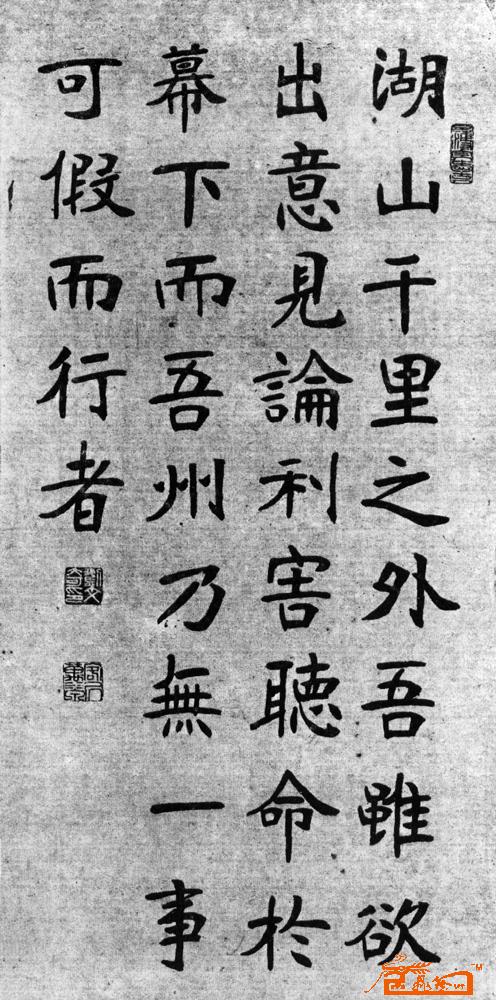 湖山千里之外吾雖欲
出意見論利害聽命於
幕下而吾州乃無一事
可假而行者